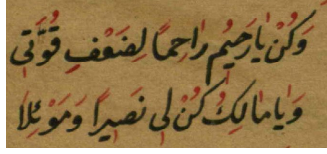 وَكُنْ يَارَحِيْمُ رَاحِمًا لِضَعْفِ قُوَّتِى
وَيَامَالِكُ كُنْ لِى نَصِيرًا وَمَوْئِلَا